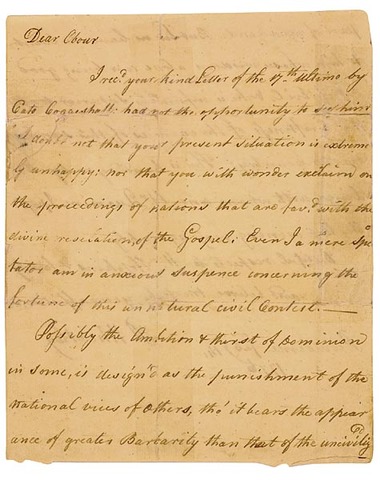 Dear Obour
I rec.d your kind Letter of the 17th Ultimo by
Cato Coggeshall: had not the opportunity to see him
I doubt not that your present situation is extreme
ly unhappy; nor that you with wonder exclaim on
the proceedings of nations that are fav.d with the
divine revelation of the Gospel: Even I a mere Spe
tator am in anxious suspence concerning the
fortune of this unnatural civil Contest.—
Possibly the Ambition & thirst of Dominion
in some, is design'd as the punishment of the
national vices of others, tho' it bears the appear
ance of greater Barbarity than that of the unciviliz